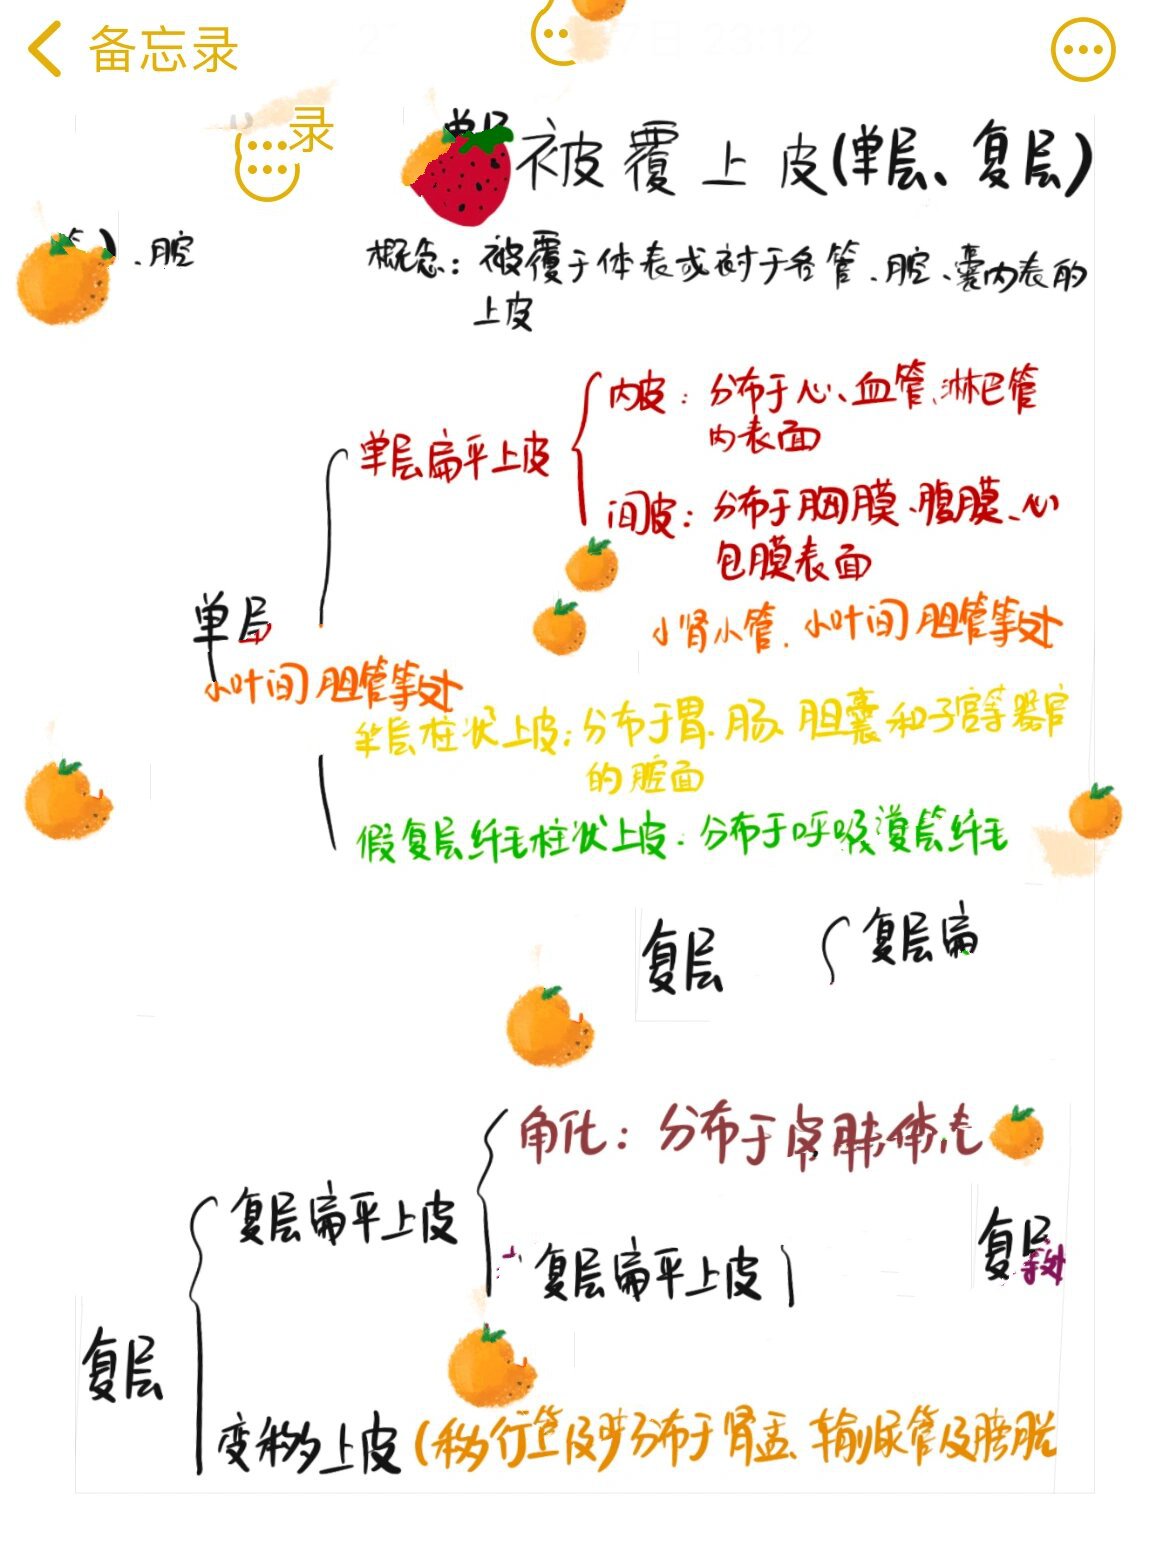 备忘录
录
被覆上皮(单层、复层)
、腔
概念：被覆于体表或衬于各管、腔、囊内表的
上皮
内皮：分布于心、血管、淋巴管
内表面
单层扁平上皮
间皮：分布于胸膜、腹膜、心
包膜表面
单层
小肾小管、小叶间胆管等处
小叶间胆管等处
单层柱状上皮：分布于胃、肠、胆囊和子宫等器官
的腔面
假复层纤毛柱状上皮：分布于呼吸复层纤毛
复层
复层扁
角化：分布于皮肤体表
复层扁平上皮
复层扁平上皮
复层
复层
变移上皮(移行上皮)分布于肾盂、输尿管及膀胱